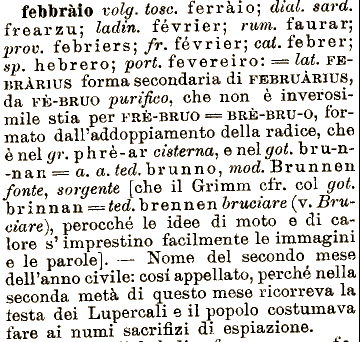 febbràio volg. tosc. ferràio; dial. sard.
frearzu; ladin. février; rum. faurar;
prov. febriers; fr. février; cat. febrer;
sp. hebrero; port. fevereiro: = lat. FE-
BRÀRIUS forma secondaria di FEBRUÀRIUS,
da FÈ-BRUO purifico, che non è inverosi-
mile stia per FRÈ-BRUO = BRÈ-BRU-O, for-
mato dall'addoppiamento della radice, che
è nel gr. phrè-ar cisterna, e nel got. bru-n-
-nan = a. a. ted. brunno, mod. Brunnen
fonte, sorgente [che il Grimm cfr. col got.
brinnan = ted. brennen bruciare (v. Bru-
ciare), perocchè le idee di moto e di ca-
lore s'imprestino facilmente le immagini
e le parole]. — Nome del secondo mese
dell'anno civile: così appellato, perchè nella
seconda metà di questo mese ricorreva la
testa dei Lupercali e il popolo costumava
fare ai numi sacrifizi di espiazione.